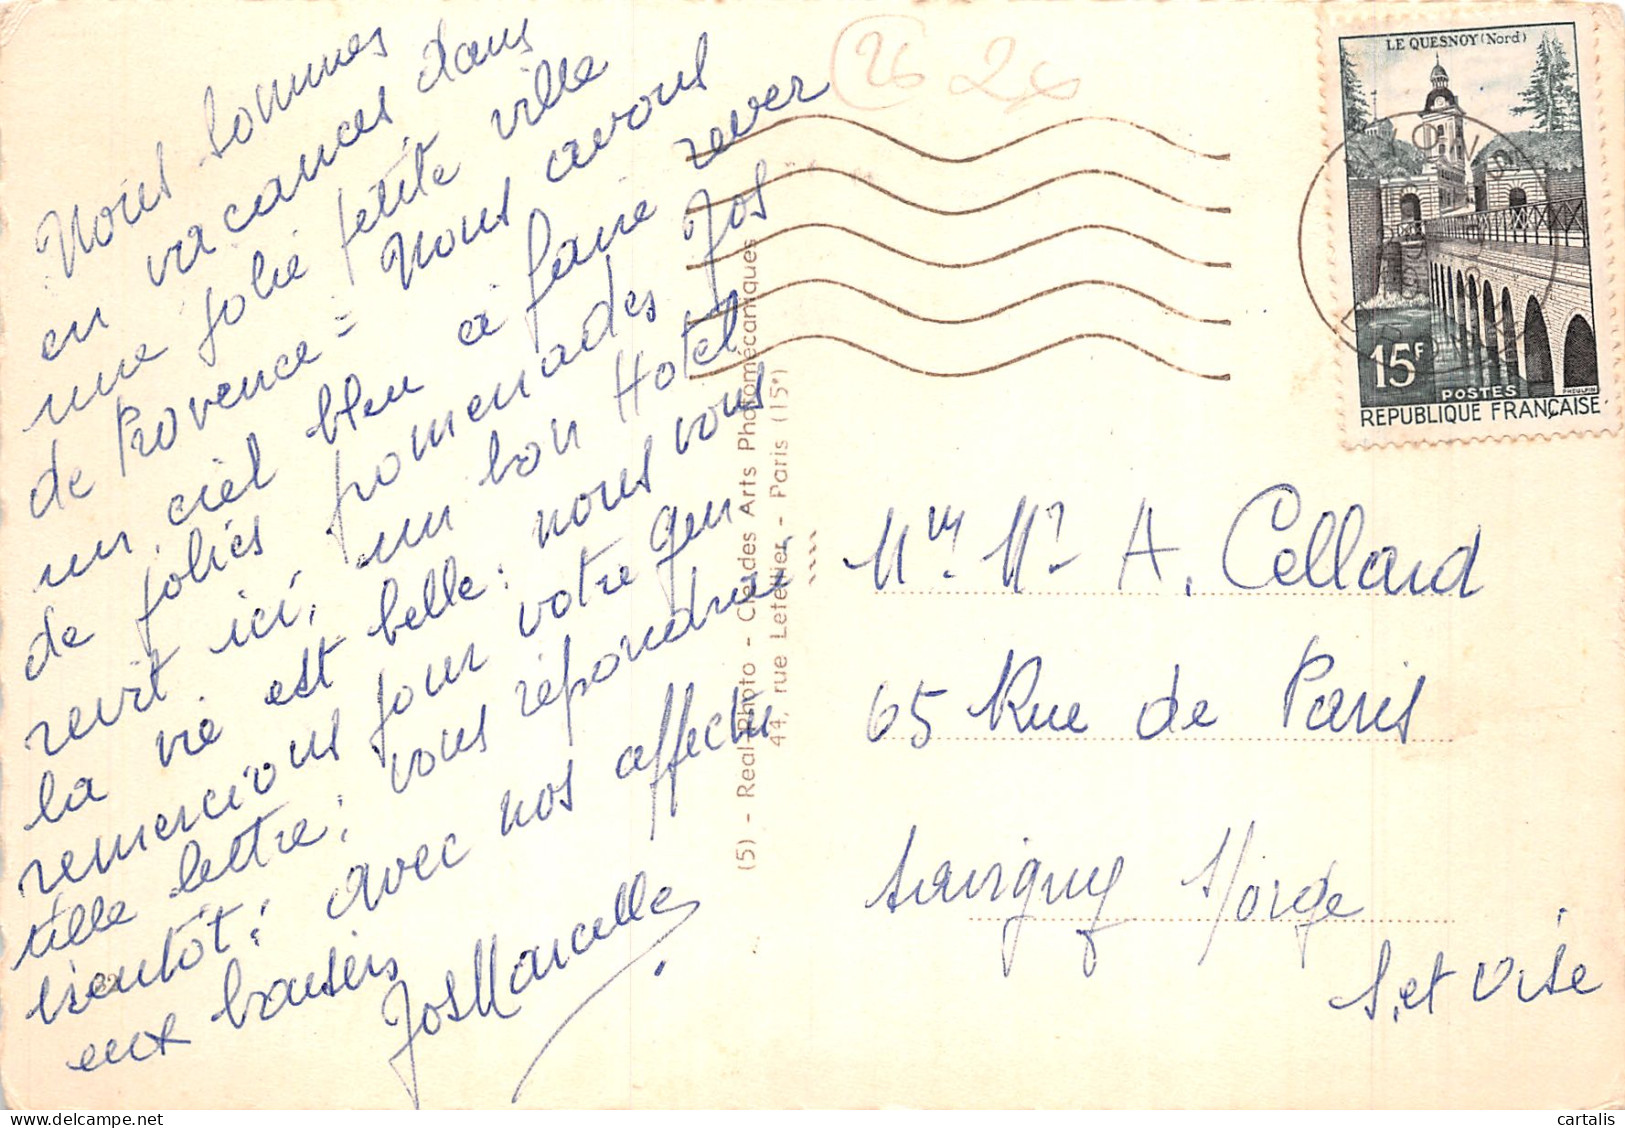 Nous sommes
en vacances dans
une jolie petite ville
de Provence = Nous avons
un ciel bleu à faire rever
de jolies promenades Jos
revit ici, un bon Hotel
la vie est belle : nous vous
remercions pour votre gen
tille lettre ; vous répondrai
bientôt ; avec nos affectu
eux baisers
Jos Marcelle
26 2x
(5) - Real-Photo - Cie des Arts Photomécaniques
44, rue Letellier - Paris (15e)
LE QUESNOY (Nord)
15F
POSTES
PHEULPIN
REPUBLIQUE FRANÇAISE
Mr Me A. Collard
65 Rue de Paris
Savigny s/orge
S. et Oise
cartalis